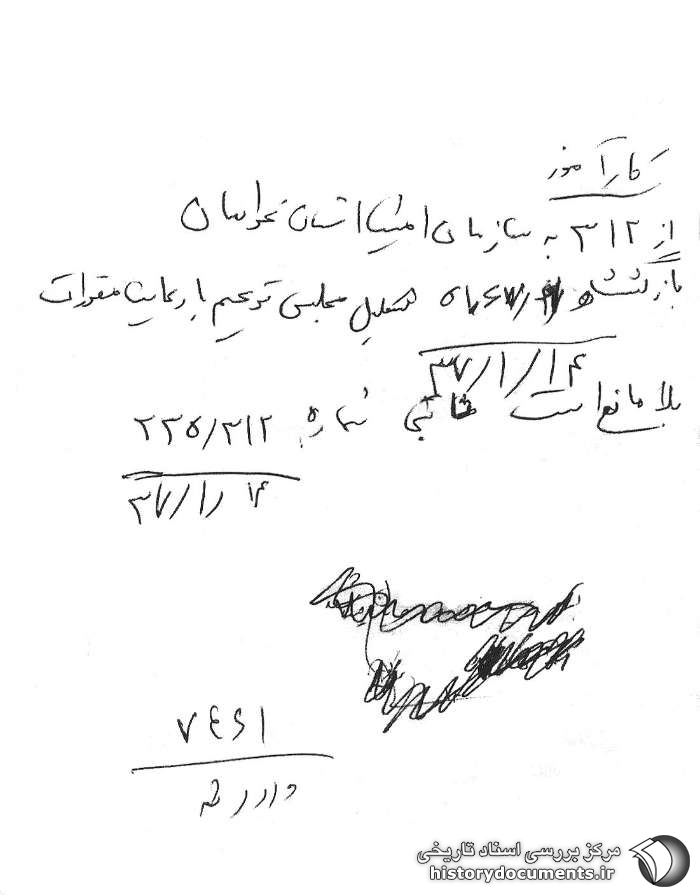 کارآموز
از ۳۱۲ به سازمان امنیت استان خراسان
بازگشت تشکیل مجلس ترحیم با رعایت مقررات
۳۷/۱/۱۴
بلا مانع است شماره ۲۳۵/۳۱۲
۳۷/۱/۱۴
مرکز بررسی اسناد تاریخی
historydocuments.ir